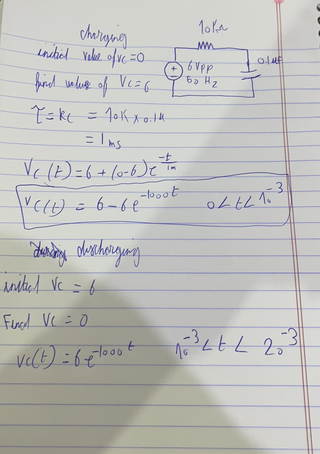 charging
10KΩ
initial value of vc=0
final values of Vc=6
6Vpp
50 Hz
0.1uf
τ = RC = 10K x 0.1u
= 1ms
Vc(t) = 6 + (0-6) e^-t/1m
Vc(t) = 6 - 6 e^-1000t 0 < t < 10^-3
discharging
initial Vc = 6
Final Vc = 0
vc(t) = 6 e^-1000t 10^-3 < t < 20^-3